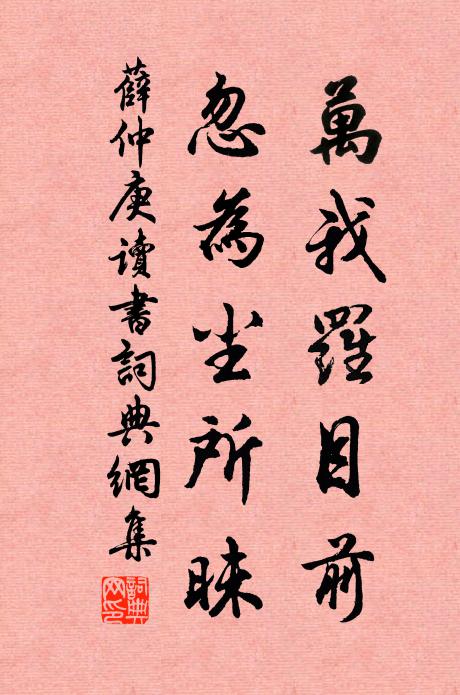 萬我羅目前
忽為尘所眯
薛仲庚讀書詞典網集
詞典网印